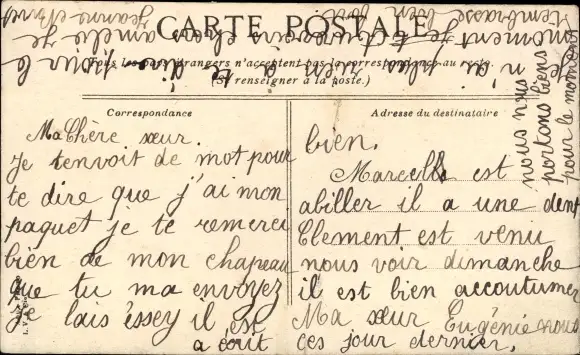 CARTE POSTALE
Tous les pays étrangers n'acceptent pas la correspondance au recto.
(Se renseigner à la poste.)
Correspondance
Ma Chère sœur.
Je tenvoit de mot pour
te dire que j'ai mon
paquet je te remerci
bien de mon chapeau
que tu ma envoyez
Je lais éssey il est
Adresse du destinataire
bien.
Marcelle est
abiller il a une dent
Clement est venu
nous voir dimanche
il est bien accoutumer
Ma sœur Eugénie nous
a écrit ces jour dernier.
nous nous
portons biens
pour le moment
je n'ai plus rien a te dire pour le
moment je
tembrasse bien fort